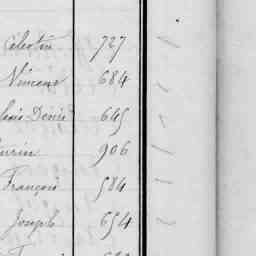 Célestin 727
Vincent 684
Denis 645
906
François 584
Joseph 654